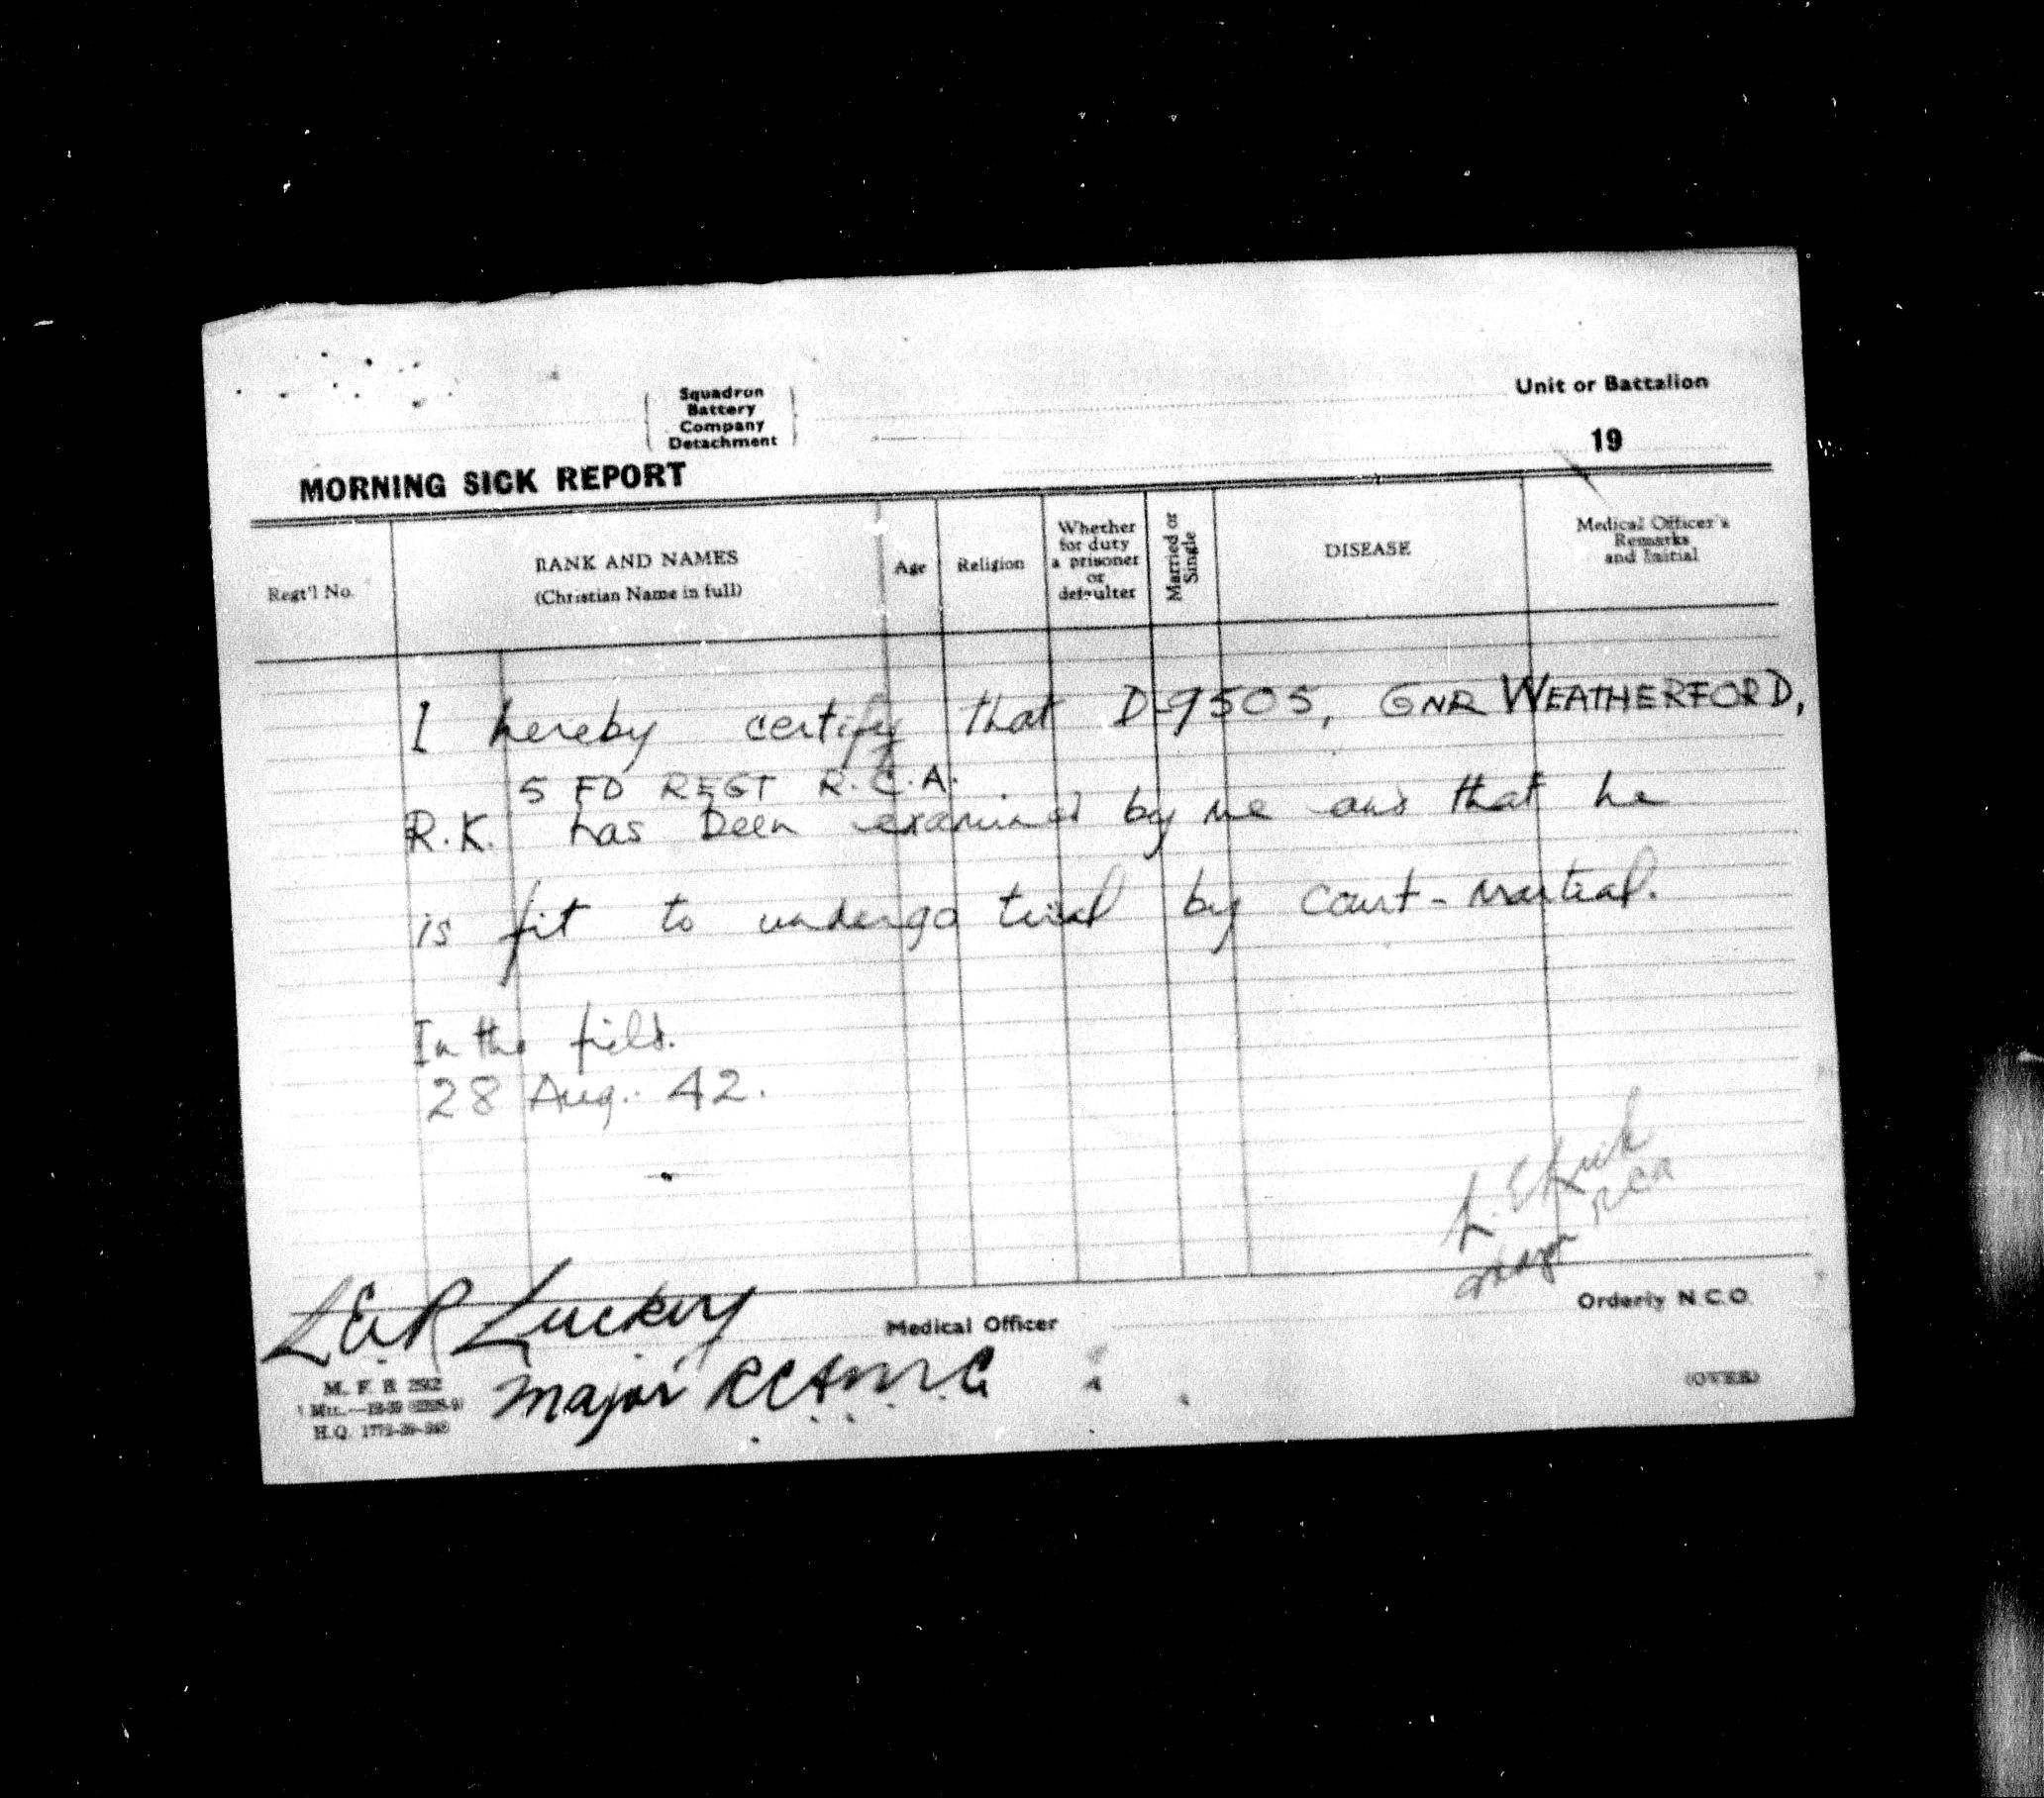 Squadron
Battery
Company
Detachment
Unit or Battalion
19
MORNING SICK REPORT
Regt'l No.
RANK AND NAMES
(Christian Name in full)
Age
Religion
Whether
for duty
a prisoner
or
defaulter
Married or
Single
DISEASE
Medical Officer's
Remarks
and Initial
I hereby certify that D-9505, GNR WEATHERFORD,
5 FD REGT R.C.A.
R.K. has been examined by me and that he
is fit to undergo trial by court-martial.
In the field.
28 Aug. 42.
RCA
Luckey
Medical Officer
Orderly N.C.O.
Major RCAMC
M. F. B 292
H.Q. 1772-39-
(OVER)